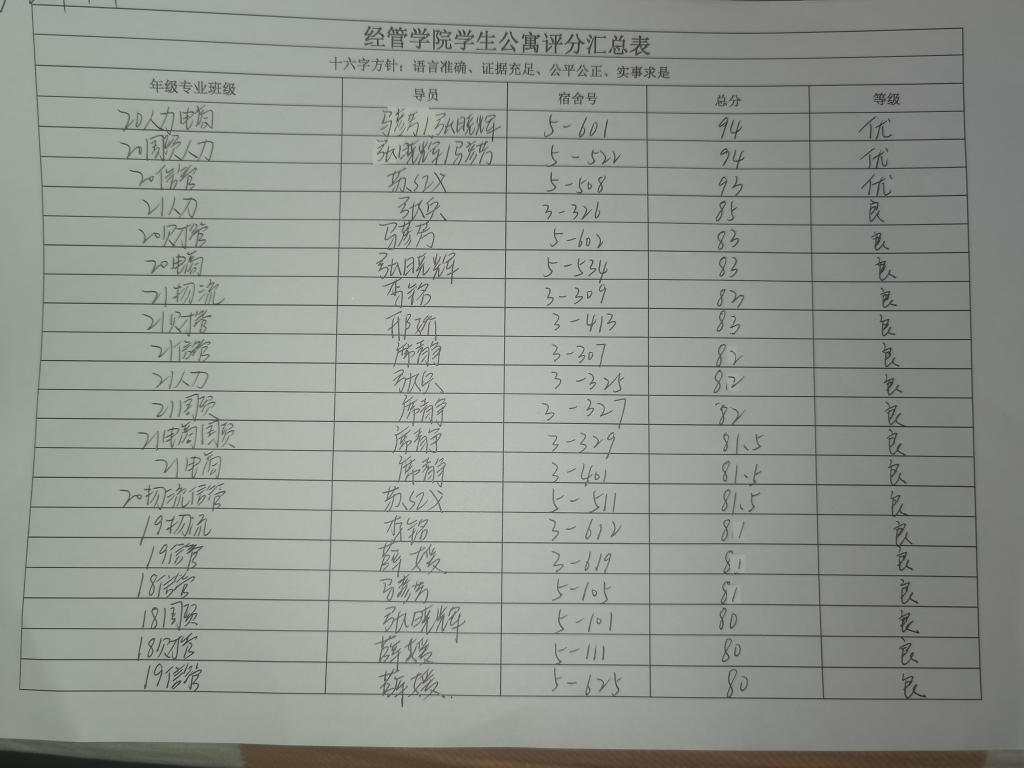 经管学院学生公寓评分汇总表
十六字方针：语言准确、证据充足、公平公正、实事求是
年级专业班级 导员 宿舍号 总分 等级
20人力电商 马彦芳/张晓辉 5-601 94 优
20国贸人力 张晓辉/马彦芳 5-522 94 优
20信管 苏 5-508 93 优
21人力 3-326 85 良
20财管 马彦芳 5-602 83 良
20电商 张晓辉 5-534 83 良
21物流 李铭 3-309 83 良
21财管 邢娇 3-413 83 良
21信管 席静静 3-307 82 良
21人力 3-325 82 良
21国贸 席静静 3-327 82 良
21电商国贸 席静静 3-329 81.5 良
21电商 席静静 3-401 81.5 良
20物流信管 苏 5-511 81.5 良
19物流 李铭 3-612 81 良
19信管 薛媛 3-619 81 良
18信管 马彦芳 5-105 81 良
18国贸 张晓辉 5-101 80 良
18财管 薛媛 5-111 80 良
19信管 薛媛 5-625 80 良